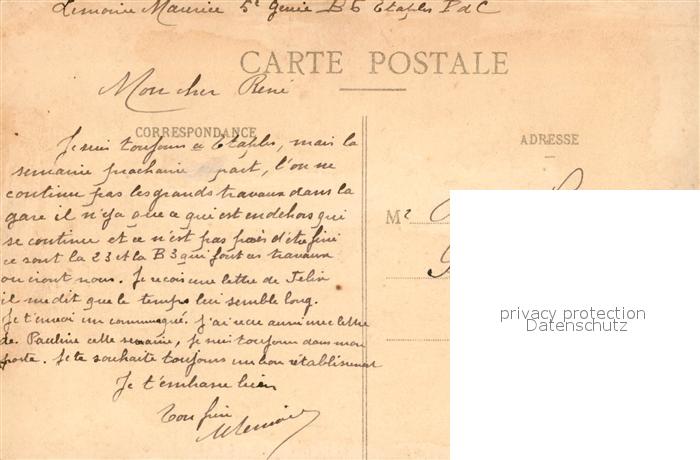 Lemoine Maurice 5e Génie B5 Etaples P d C
CARTE POSTALE
Mon cher René
CORRESPONDANCE
ADRESSE
Je suis toujours a Etaples, mais la
semaine prochaine part, l'on ne
continue pas les grands travaux dans la
gare il n'y a que ce qui est en dehors qui
se continue et ce n'est pas près d'être fini
ce sont la 23 et la B3 qui font ces travaux
ou iront nous. Je reçois une lettre de
il me dit que le temps lui semble long.
Je t'envoi un communiqué. J'ai reçu aussi une lettre
de Pauline cette semaine, je suis toujours dans mon
poste. Je te souhaite toujours un bon rétablissement
Je t'embrasse bien
Ton frère
MLemoine
Mr
privacy protection
Datenschutz